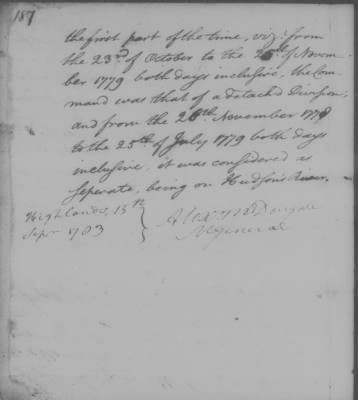 187
the first part of the time, viz: from
the 23rd of October to the 25th of Novem-
ber 1779 both days inclusive, the Com-
mand was that of a detached Division;
and from the 26th November 1778
to the 25th of July 1779 both days
inclusive, it was considered as
seperate, being on Hudsons River.
Highlands, 15th
Sepr 1783
Alexr McDougall
MGeneral